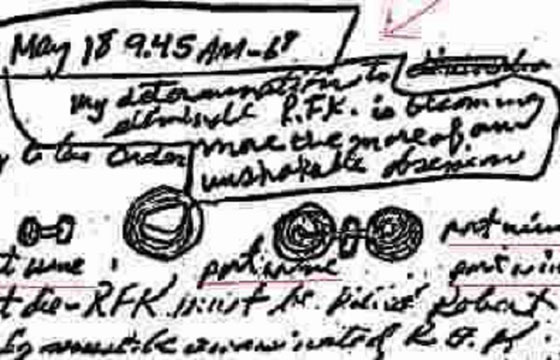 May 18 9.45 AM-68
my determination to
eliminate R.F.K. is becoming
more the more of an
unshakable obsession
to the order
port wine
port wine
port wine
die - RFK must be Robert
must be assassinated R.F.K